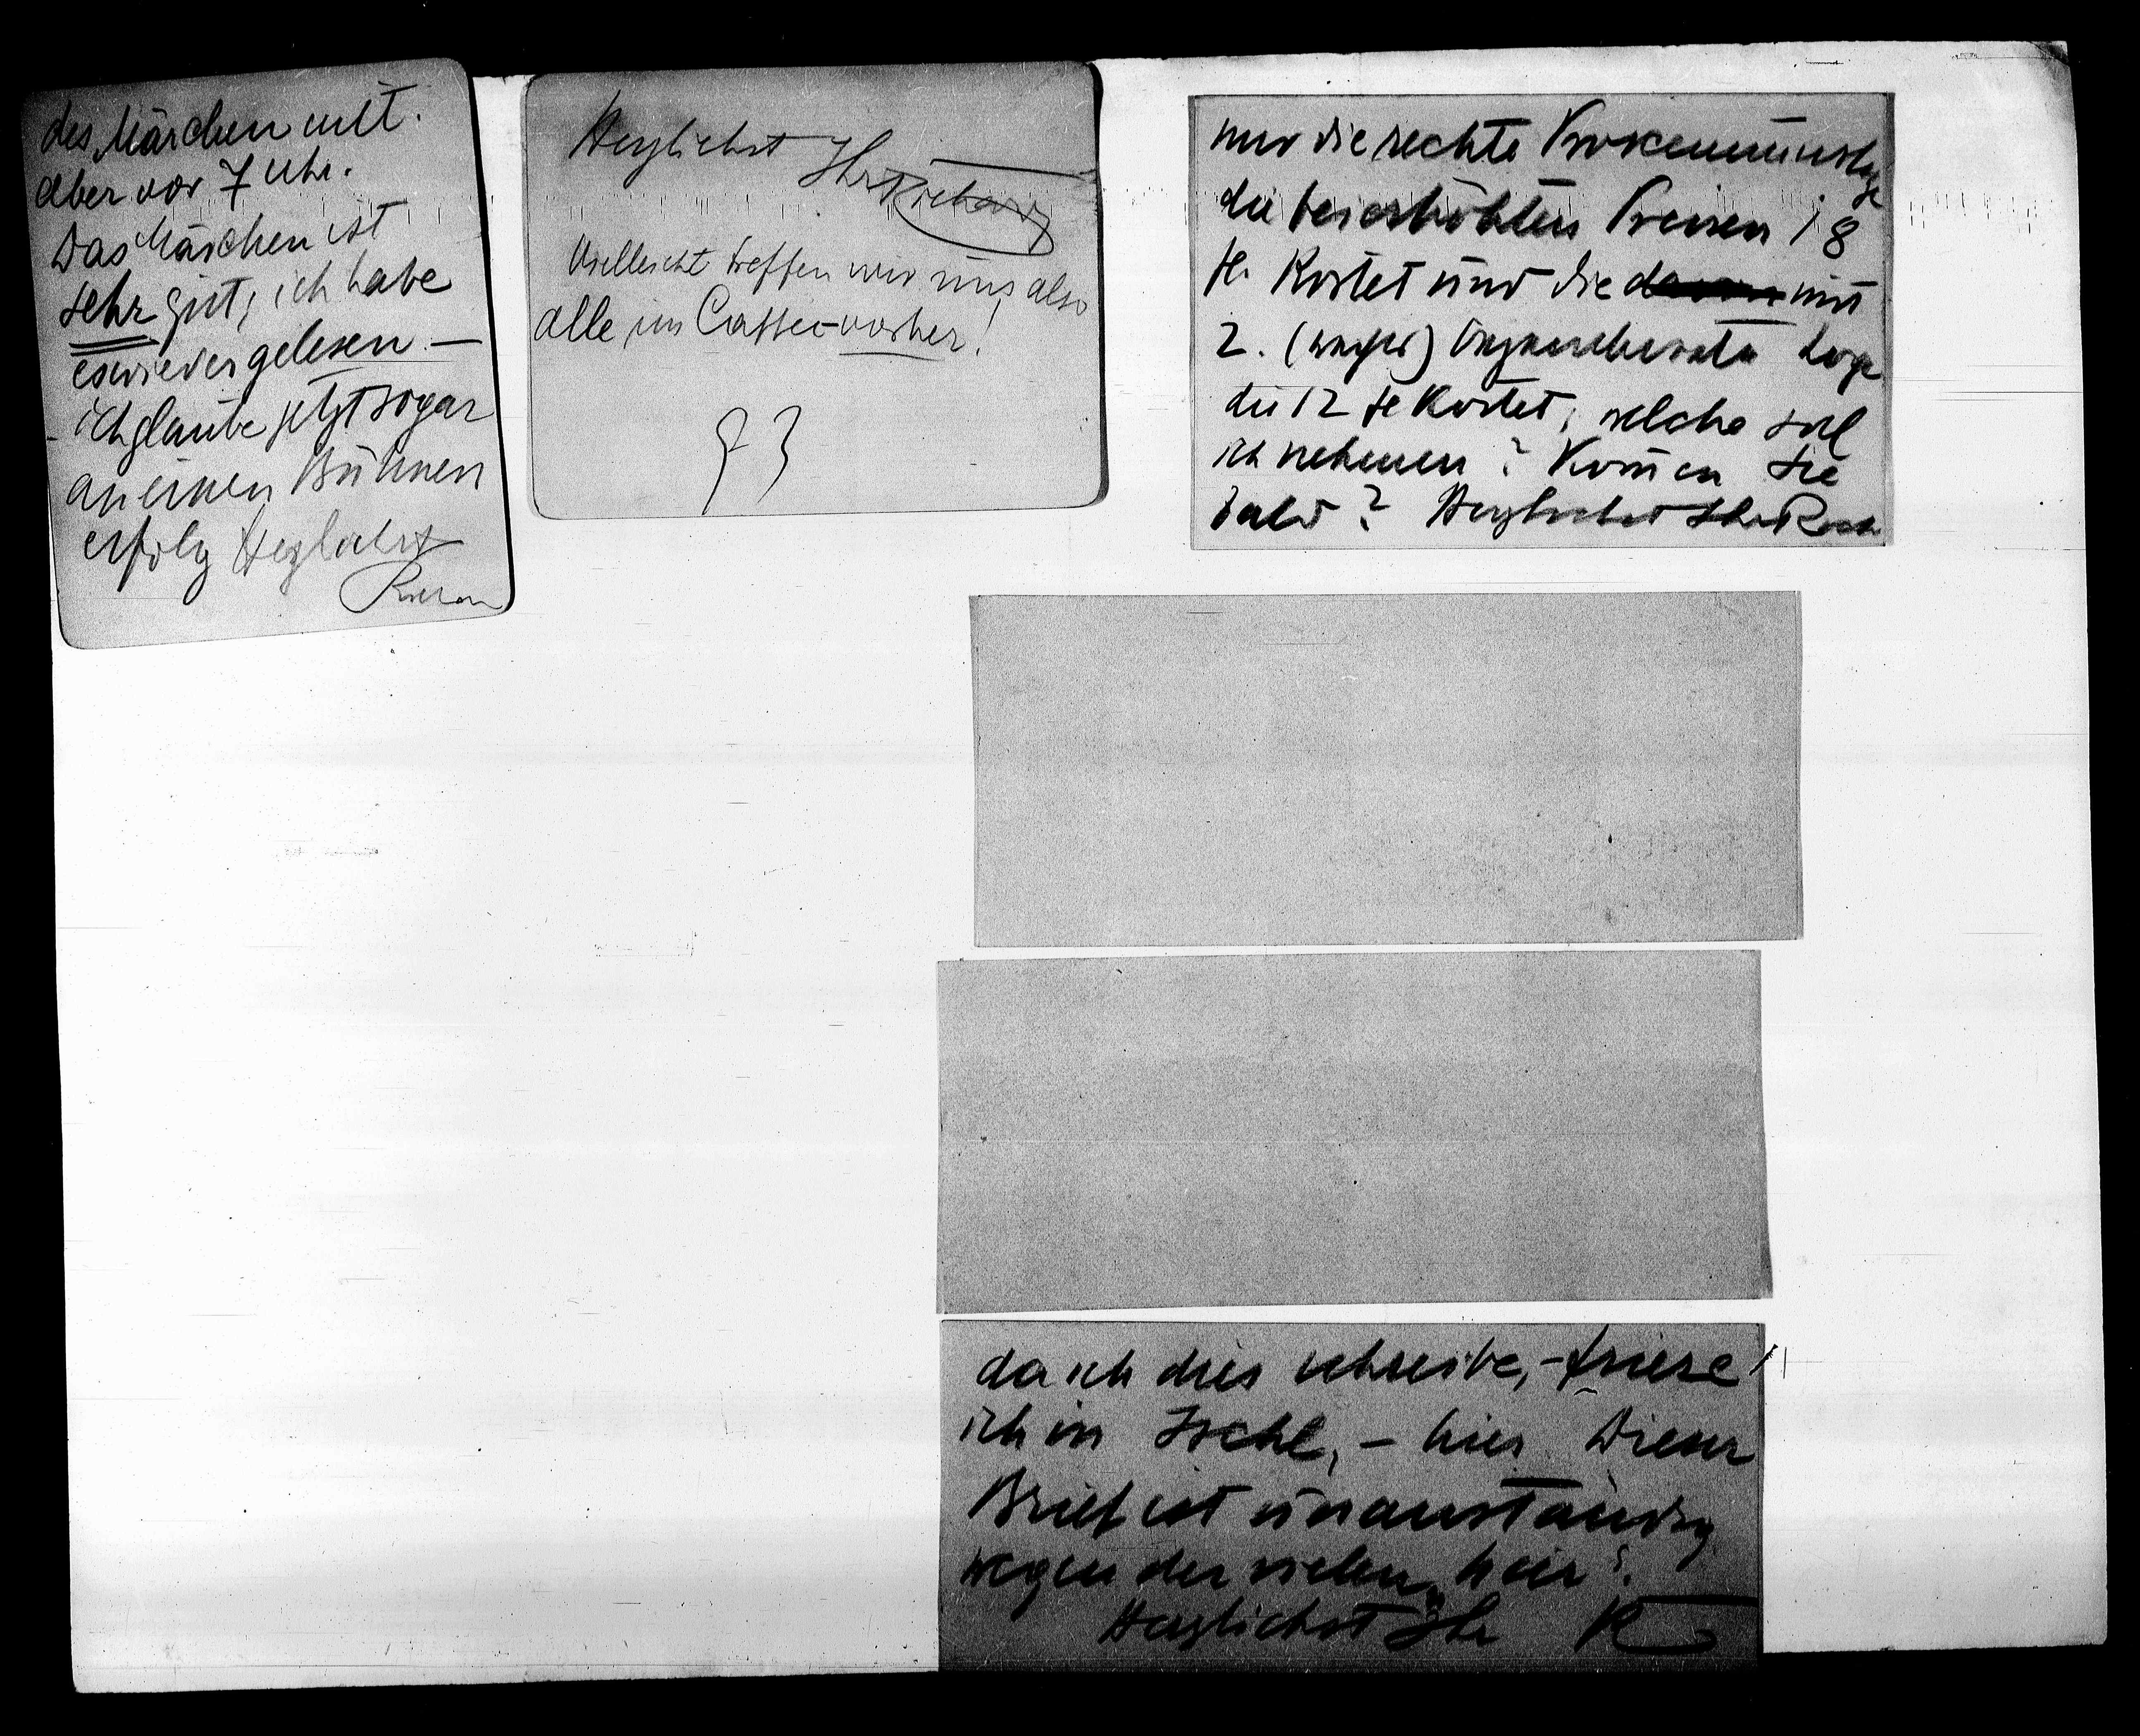 des Märchen mit.
aber vor 7 Uhr.
Das Märchen ist
sehr gut, ich habe
es wieder gelesen. —
ich glaube jetzt sogar
an einen Bühnen
erfolg Herzlichst
Richard
Herzlichst Ihr Richard
Vielleicht treffen wir uns also
alle im Caffee vorher!
93
nur die rechte
die bei erhöhten Preisen 18
fl. kostet und die mit
2. Loge
die 12 fl kostet, welche soll
ich nehmen? Komen Sie
bald? Herzlichst Ihr Rich
da ich dies schreibe, – friere
ich in Ischl, – hier Dieser
Brief ist unanständig
wegen der vielen „hier".
Herzlichst Ihr R